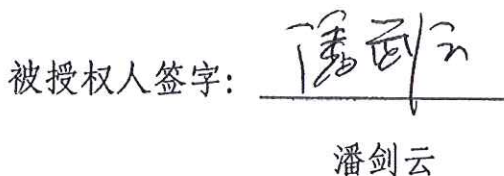 被授权人签字：潘剑云
潘剑云